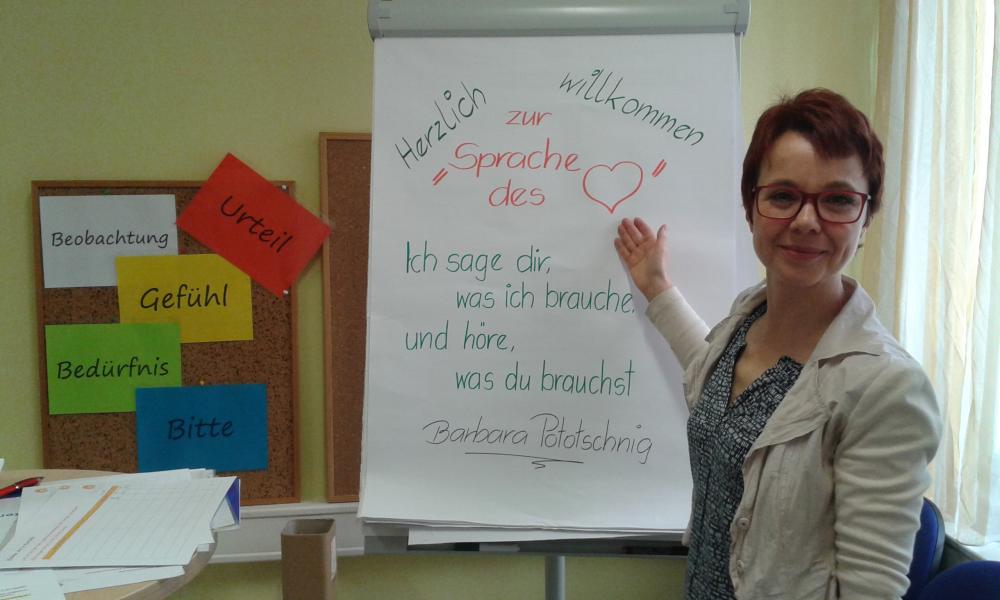 Herzlich willkommen
zur
"Sprache
des ♡"
Ich sage dir,
was ich brauche,
und höre,
was du brauchst
Barbara Pototschnig
Urteil
Beobachtung
Gefühl
Bedürfnis
Bitte